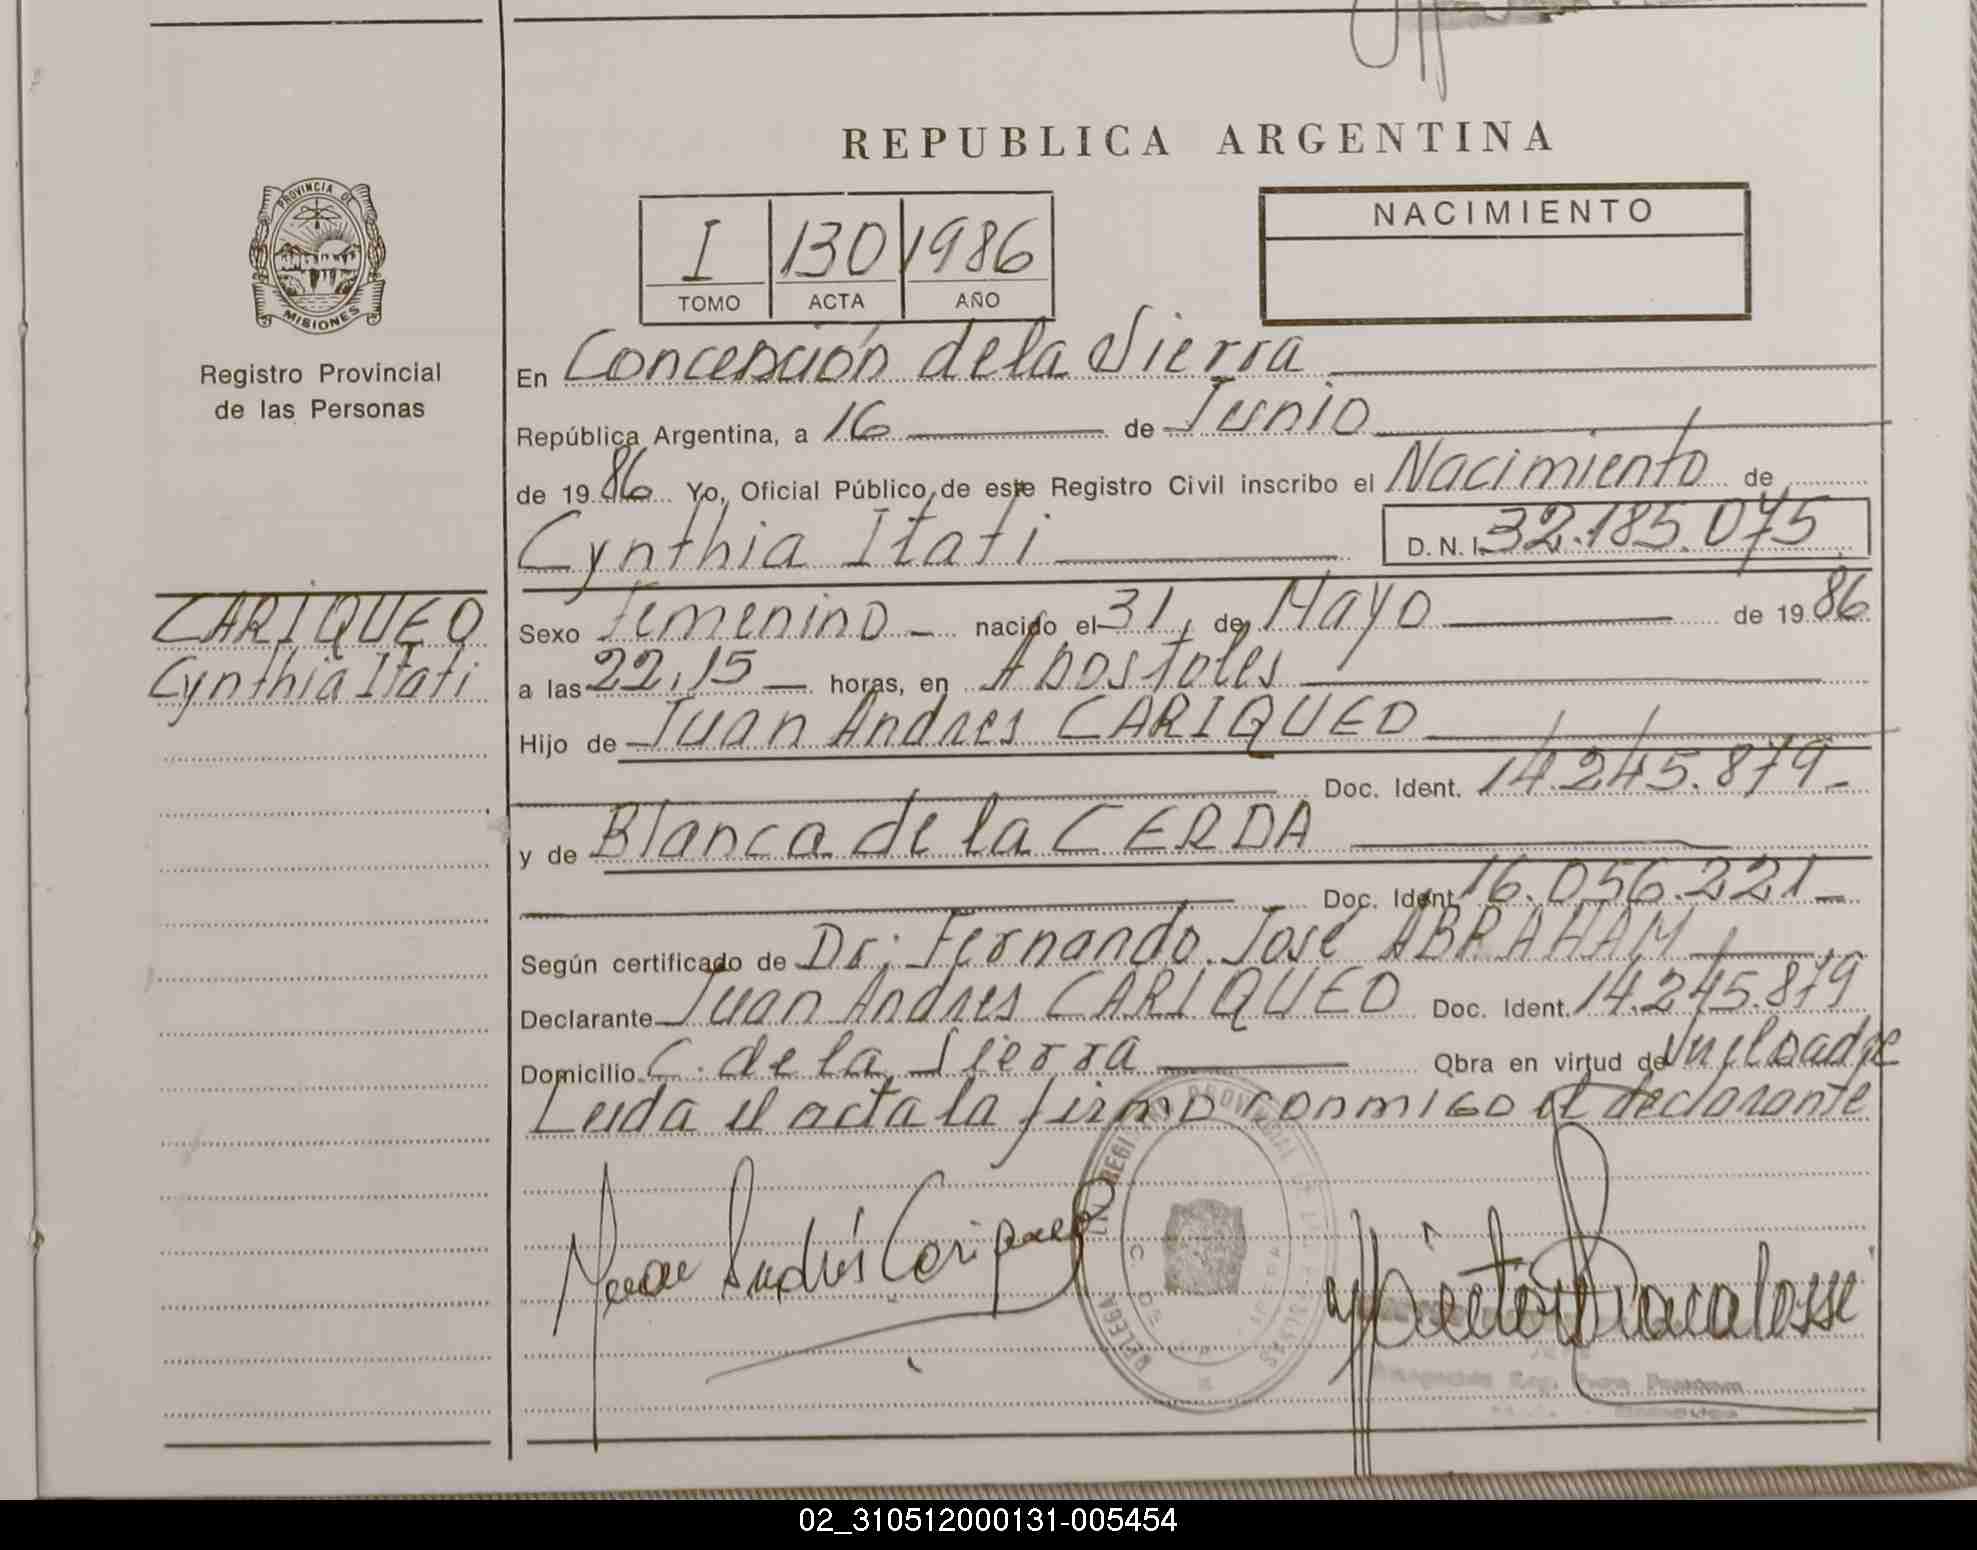 REPUBLICA ARGENTINA
PROVINCIA DE
MISIONES
Registro Provincial
de las Personas
I 130 1986
TOMO ACTA AÑO
NACIMIENTO
En Concepción de la Sierra
República Argentina, a 16 de Junio
de 1986 Yo, Oficial Público de este Registro Civil inscribo el Nacimiento de
Cynthia Itati D. N. I. 32.185.075
CARIQUEO
Cynthia Itati
Sexo Femenino nacido el 31 de Mayo de 1986
a las 22,15 horas, en Apostoles
Hijo de Juan Andres CARIQUEO
Doc. Ident. 14.245.879
y de Blanca de la CERDA
Doc. Ident. 16.056.221
Según certificado de Dr. Fernando José ABRAHAM
Declarante Juan Andres CARIQUEO Doc. Ident. 14.245.879
Domicilio C. de la Sierra Obra en virtud de
Leida el acta la firma conmigo el declarante
Juan Andrés Cariqueo
02_310512000131-005454